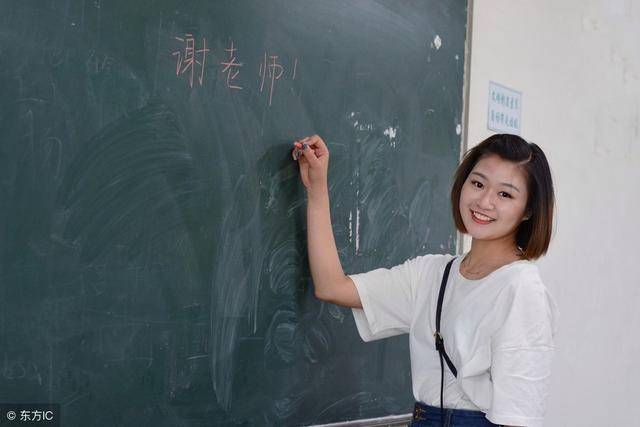 谢老师!
© 东方IC